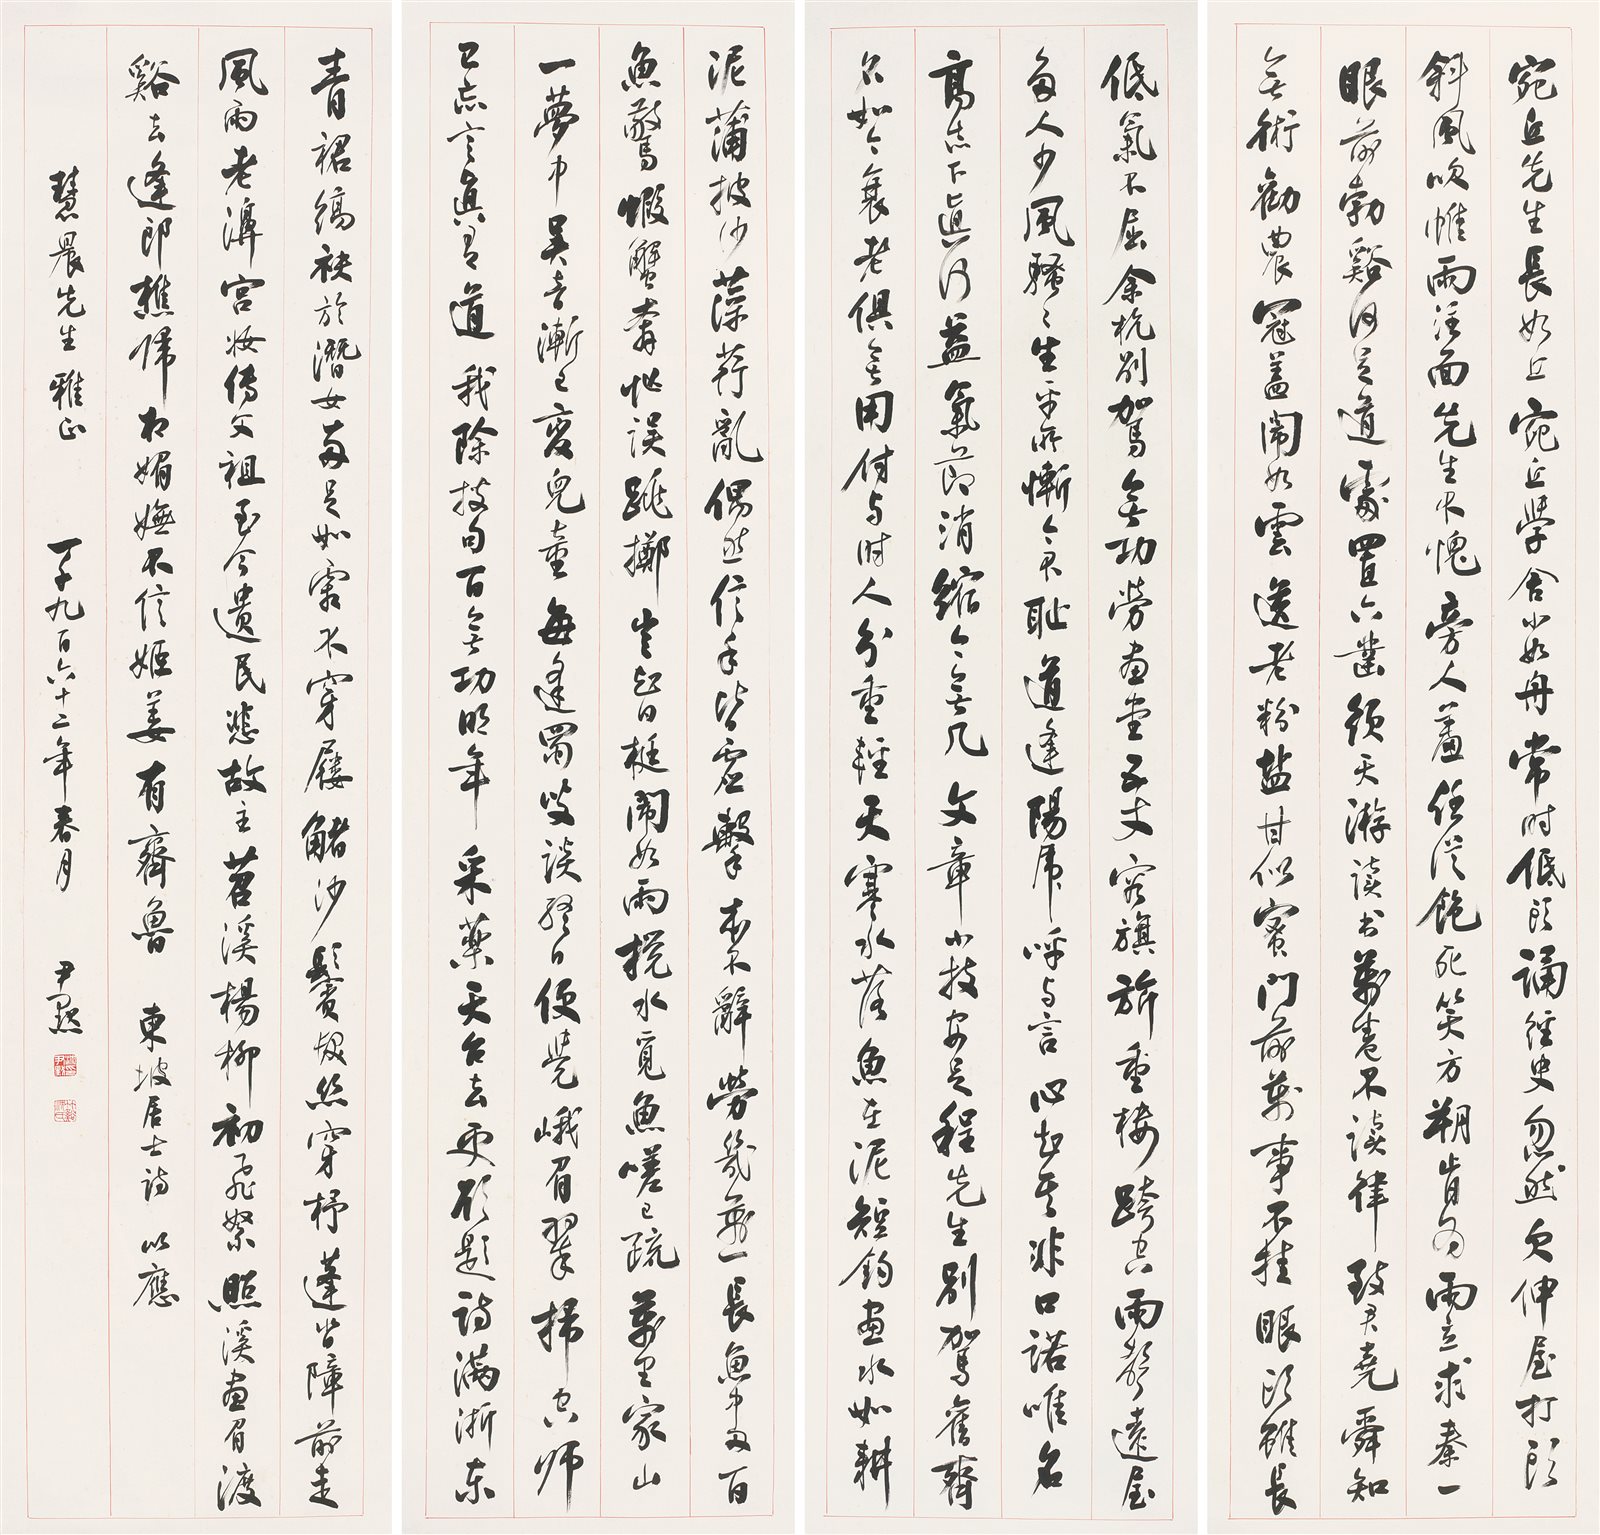 宛丘先生長如丘宛丘學舍小如舟常時低頭誦經史忽然欠伸屋打頭
斜風吹帷雨注面先生不愧旁人羞任從飽死笑方朔肯為雨立求秦一
眼前勃谿何足道處置六鑿須天游讀書萬卷不讀律致君堯舜知
無術勸農冠蓋鬧如雲送老粉鹽甘似蜜門前萬事不挂眼頭雖長
低氣不屈余杭別駕無功勞畫堂五丈容旗旂重樓跨空雨聲遠屋
多人少風騷〻生平所慚今不恥道逢陽虎呼与言心知其非口諾唯名
高志下真何益氣節消縮今無幾文章小技安足程先生別駕舊齊
名如今衰老俱無用付与時人分重輕天寒水落魚在泥短鉤畫水如耕
泥蒲披沙藻荇亂偶然信手皆虛擊本不辭勞幾萬一長魚中刃百
魚驚蝦蟹奔忙誤跳擲豈知白梃鬧如雨攪水覓魚嗟已疏萬里家山
一夢中吳音漸已變兒童每逢蜀叟談終日便覺峨眉翠掃空師
已忘言真有道我除搜句百無功明年采藥天台去更欲題詩滿浙東
青裙縞袂於潛女兩足如霜不穿屨䚲沙鬢髮絲穿杼蓬沓障前走
風雨老濞宮妝傳父祖至今遺民悲故主苕溪楊柳初飛絮照溪畫眉渡
谿去逢郎樵歸相媚嫵不信姬姜有齊魯 東坡居士詩以應
慧晨先生雅正 一千九百六十二年春月 尹默